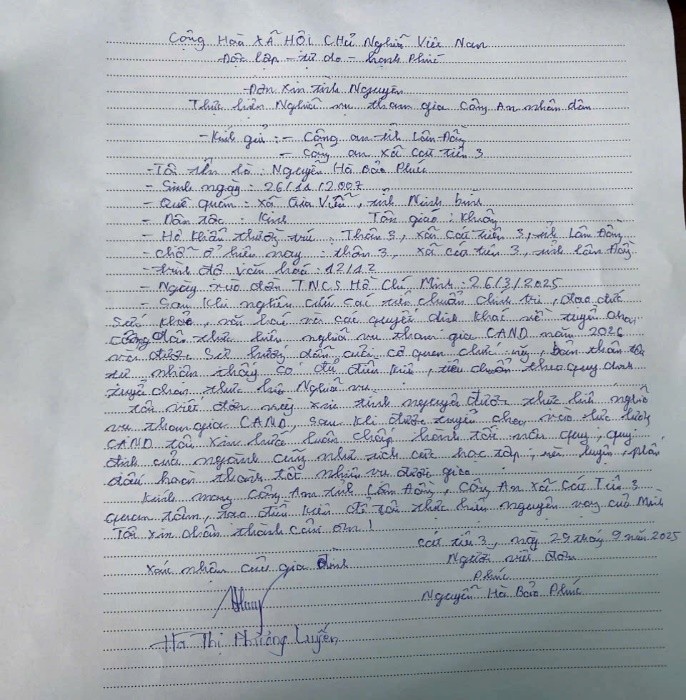 Cộng Hoà XÃ HỘI CHỦ Nghĩa Việt Nam
Độc lập - tự do - hạnh Phúc
Đơn Xin tình Nguyện
Thực hiện Nghĩa vụ tham gia Công An nhân dân
- Kính gửi : - Công an tỉnh Lâm Đồng
- Công an xã Cát tiên 3
- Tôi tên là : Nguyễn Hà Bảo Phúc
- Sinh ngày : 26/11/2007
- Quê quán : xã Gia Viễn, tỉnh Ninh bình
- Dân tộc : Kinh Tôn giáo : Không
- Hộ khẩu thường trú : Thôn 3, xã Cát tiên 3, tỉnh Lâm Đồng
- Chỗ ở hiện nay : thôn 3, xã Cát tiên 3, tỉnh Lâm Đồng
- trình độ văn hoá : 12/12
- Ngày vào đoàn TNCS Hồ Chí Minh : 26/3/2025
- Sau khi nghiên cứu các tiêu chuẩn chính trị, đạo đức
Sức khỏe, văn hoá và các quyết định khác về tuyển chọn
công dân thực hiện nghĩa vụ tham gia CAND năm 2026
và được sự hướng dẫn của cơ quan chức năng, bản thân tôi
tự nhận thấy có đủ điều kiện, tiêu chuẩn theo quy định
tuyển chọn thực hiện Nghĩa vụ
tôi viết đơn này xin tình nguyện được thực hiện nghĩa
vụ tham gia CAND, sau khi được tuyển chọn vào lực lượng
CAND tôi xin hứa luôn chấp hành tốt nội quy, quy
định của ngành cũng như tích cực học tập, rèn luyện, phấn
đấu hoàn thành tốt nhiệm vụ được giao
Kính mong Công An tỉnh Lâm Đồng, Công An xã Cát Tiên 3
quan tâm, tạo điều kiện để tôi thực hiện nguyện vọng của Mình
Tôi xin chân thành cảm ơn !
Cát tiên 3, ngày 29 tháng 9 năm 2025
Xác nhận của gia đình Người viết đơn
Phúc
Nguyễn Hà Bảo Phúc
Hà Thị Phương Luyến